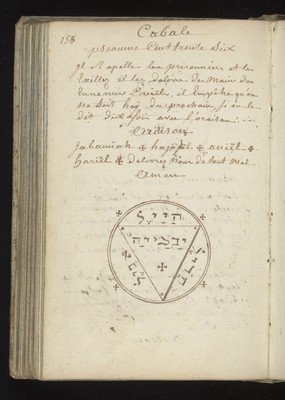 158
Cabale
pseaume Cent trente Six
il Rapelle les prisonniers et les
Exillez il les delivre des Mains des
Ennemis Cruels, il Empêche qu'on
ne Soit hay du prochain Si on le
dit dix fois avec l'oraison
oraison
Jabamiah ✠ hajajel ✠ aniël ✠
hariël ✠ delivrez Nous de tout Mal
amen
הייל
יבמייה